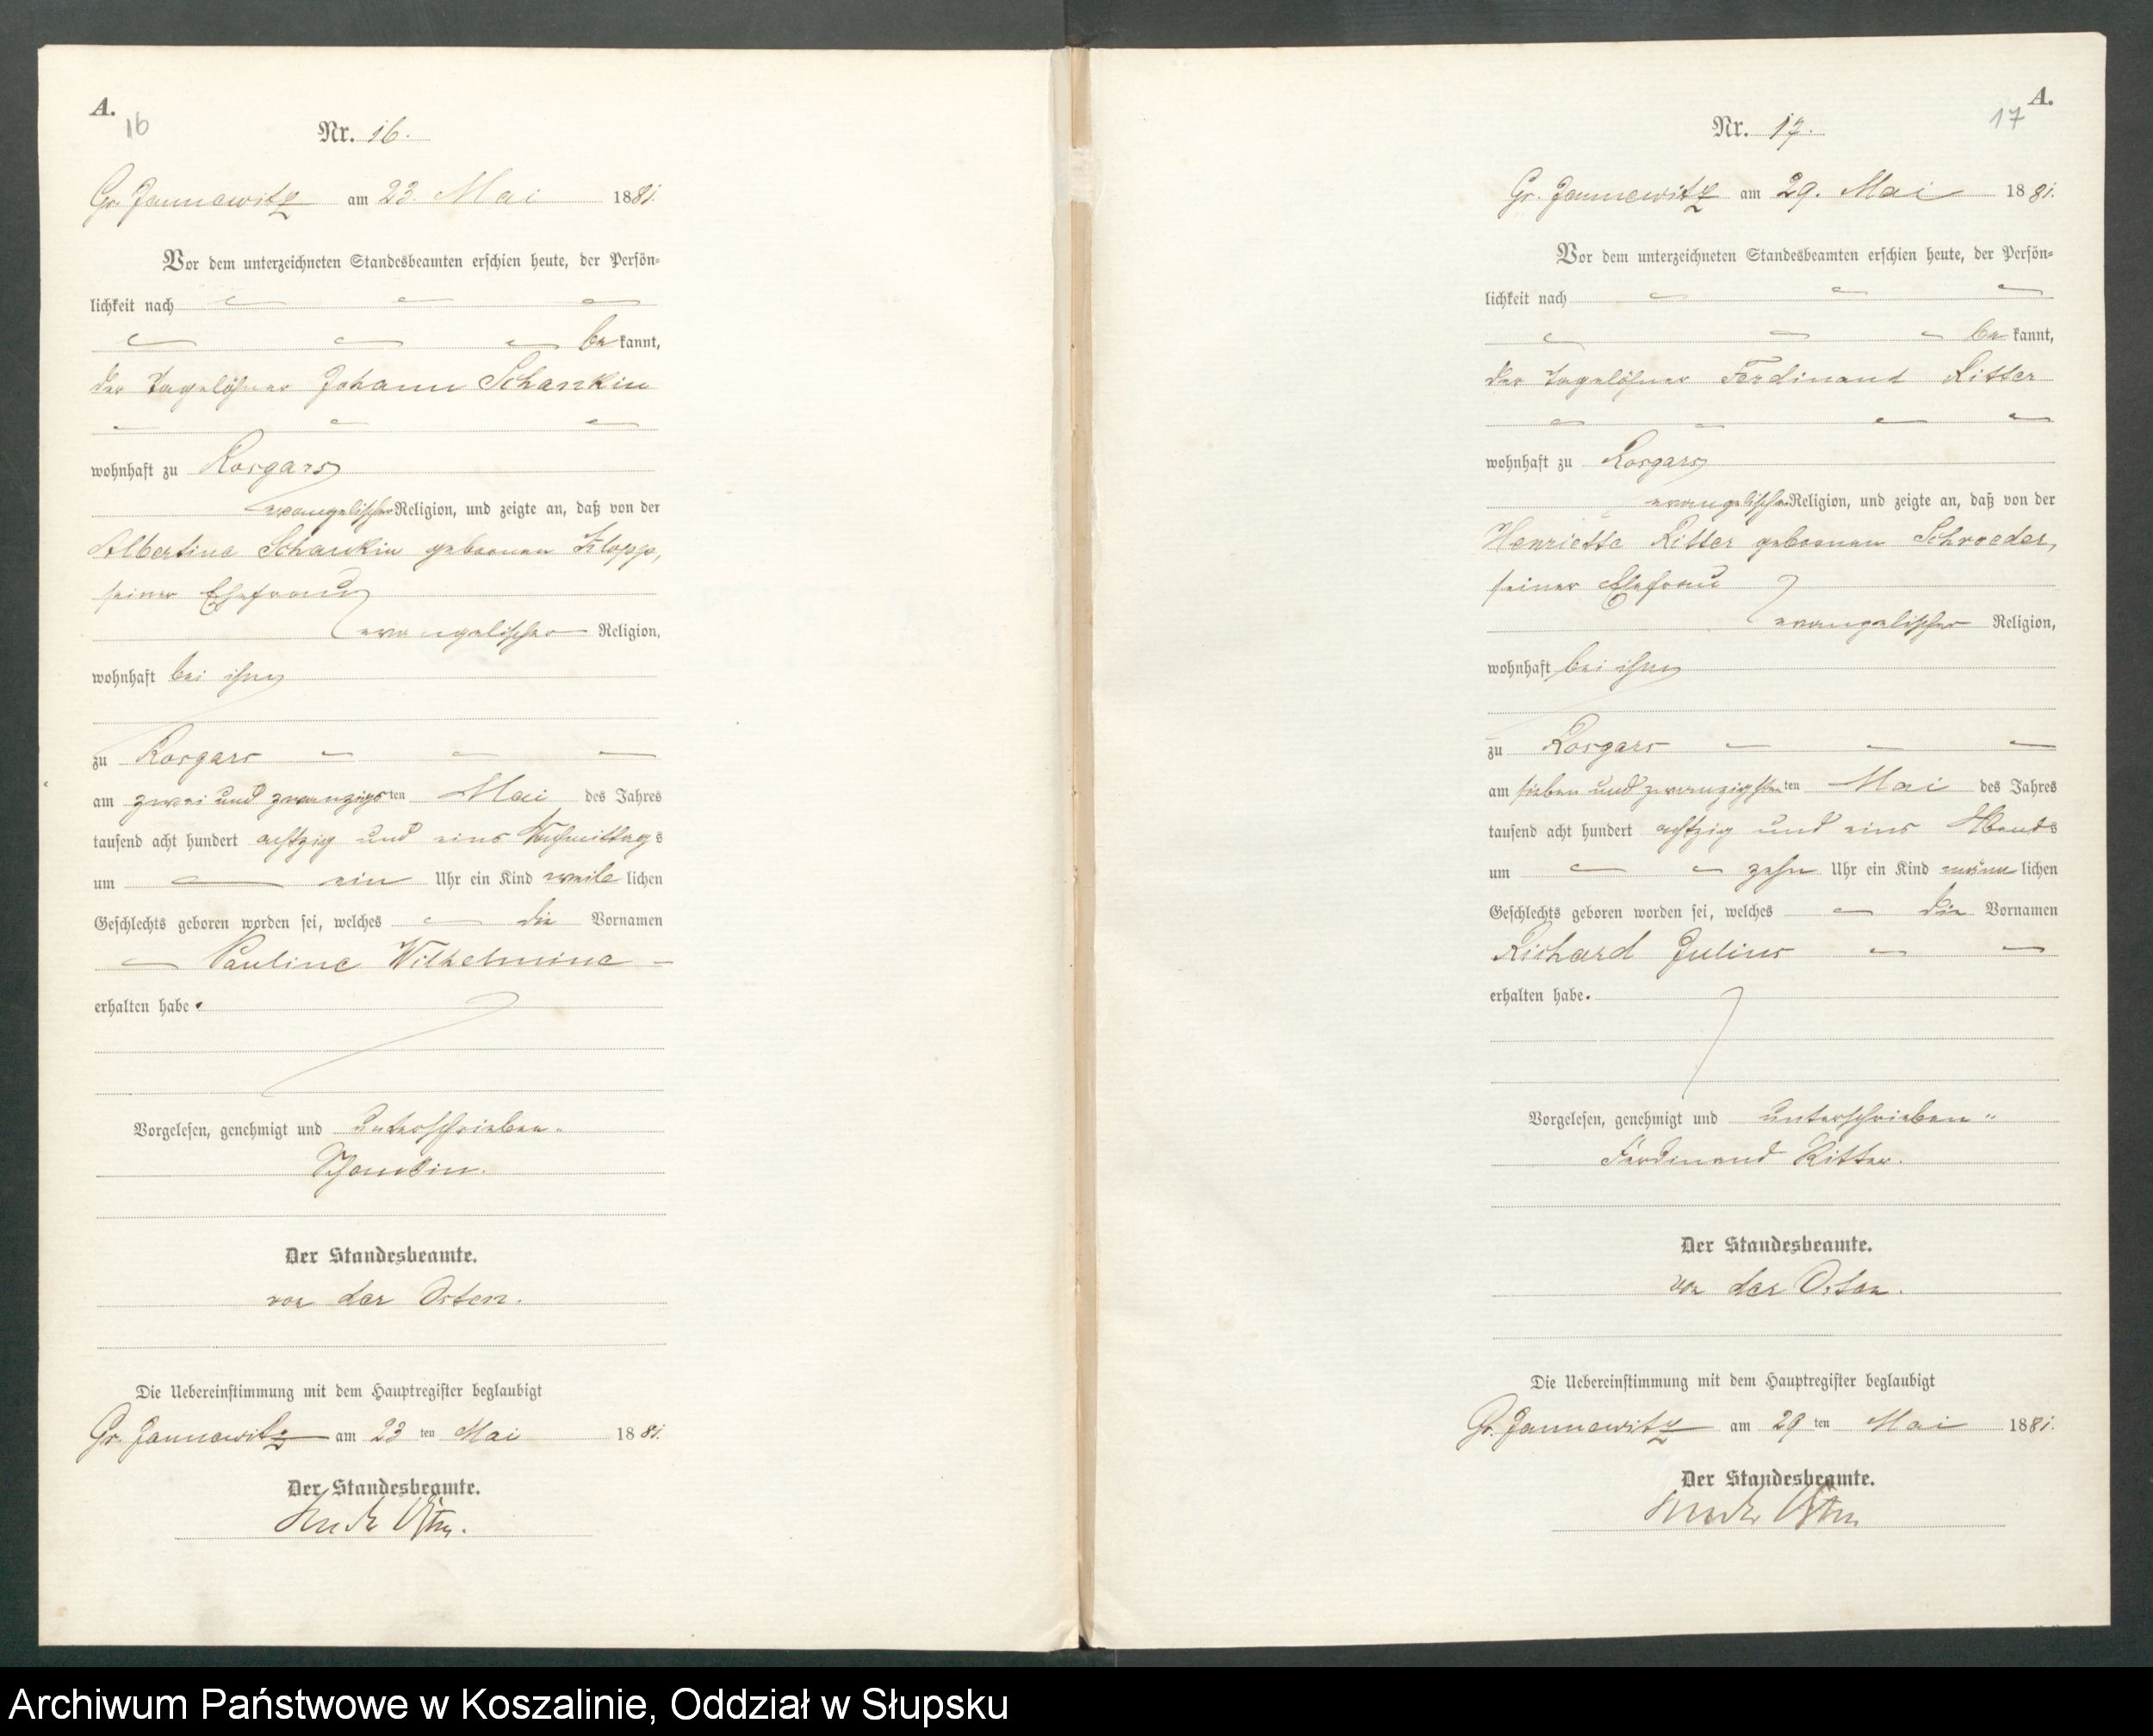 A.
16
Nr. 16.
Gr. Jannewitz am 23. Mai 1881.
Vor dem unterzeichneten Standesbeamten erschien heute, der Persön-
lichkeit nach
bekannt,
der Tagelöhner Johann Schankin
wohnhaft zu Rosgars
evangelischer Religion, und zeigte an, daß von der
Albertine Schankin geborenen Klopp,
seiner Ehefrau
evangelischer Religion,
wohnhaft bei ihm
zu Rosgars
am zwei und zwanzigsten Mai des Jahres
tausend acht hundert achtzig und eins Nachmittags
um ein Uhr ein Kind weiblichen
Geschlechts geboren worden sei, welches die Vornamen
Pauline Wilhelmine
erhalten habe.
Vorgelesen, genehmigt und unterschrieben.
Schankin.
Der Standesbeamte.
von der Osten.
Die Uebereinstimmung mit dem Hauptregister beglaubigt
Gr. Jannewitz am 23 ten Mai 1881.
Der Standesbeamte.
Osten.
A.
17
Nr. 17.
Gr. Jannewitz am 29. Mai 1881.
Vor dem unterzeichneten Standesbeamten erschien heute, der Persön-
lichkeit nach
bekannt,
der Tagelöhner Ferdinand Ritter
wohnhaft zu Rosgars
evangelischer Religion, und zeigte an, daß von der
Henriette Ritter geborenen Schroeder,
seiner Ehefrau
evangelischer Religion,
wohnhaft bei ihm
zu Rosgars
am sieben und zwanzigsten ten Mai des Jahres
tausend acht hundert achtzig und eins Abends
um zehn Uhr ein Kind männlichen
Geschlechts geboren worden sei, welches die Vornamen
Richard Julius
erhalten habe.
Vorgelesen, genehmigt und unterschrieben
Ferdinand Ritter.
Der Standesbeamte.
von der Osten.
Die Uebereinstimmung mit dem Hauptregister beglaubigt
Gr. Jannewitz am 29 ten Mai 1881.
Der Standesbeamte.
Osten
Archiwum Państwowe w Koszalinie, Oddział w Słupsku